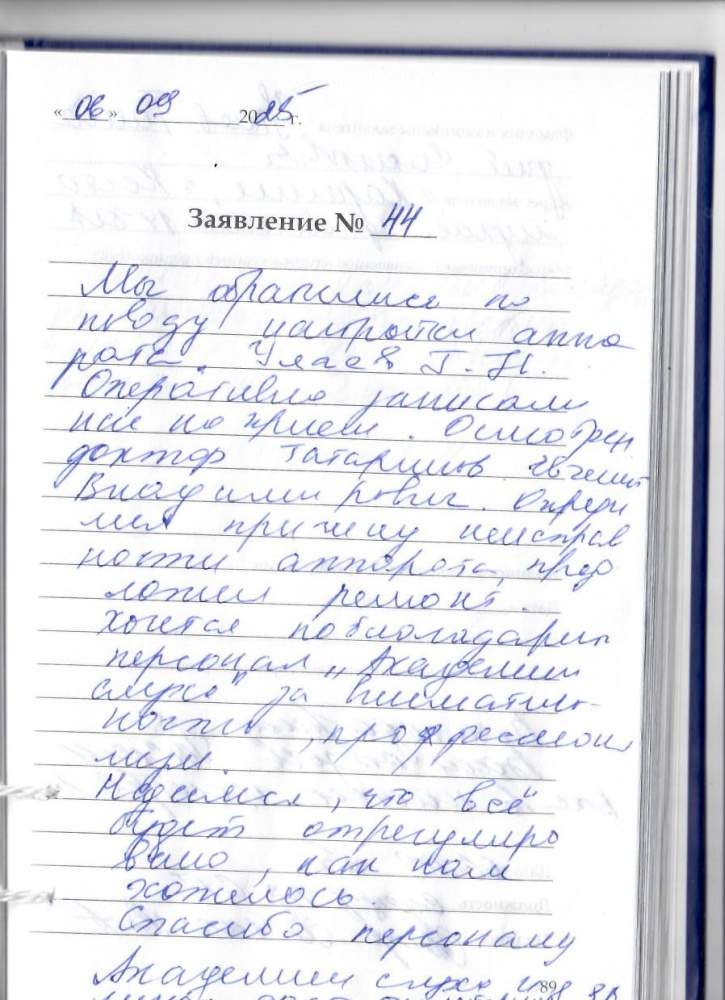 « 06 » 09 2025 г.
Заявление № 44
Мы обратились по
поводу настройки аппа
рата. Г. Н.
Оперативно записали
нас на прием. Осмотрен
доктор Татаринов Евгений
Владимирович. Опреде
лил причину неисправ
ности аппарата, пред
ложил ремонт.
Хочется поблагодарить
персонал „Академии
слуха" за вниматель-
ность, профессиона
лизм.
Надеемся, что всё
будет отрегулиро
вано, как нам
хотелось.
Спасибо персоналу
Академии слуха
89